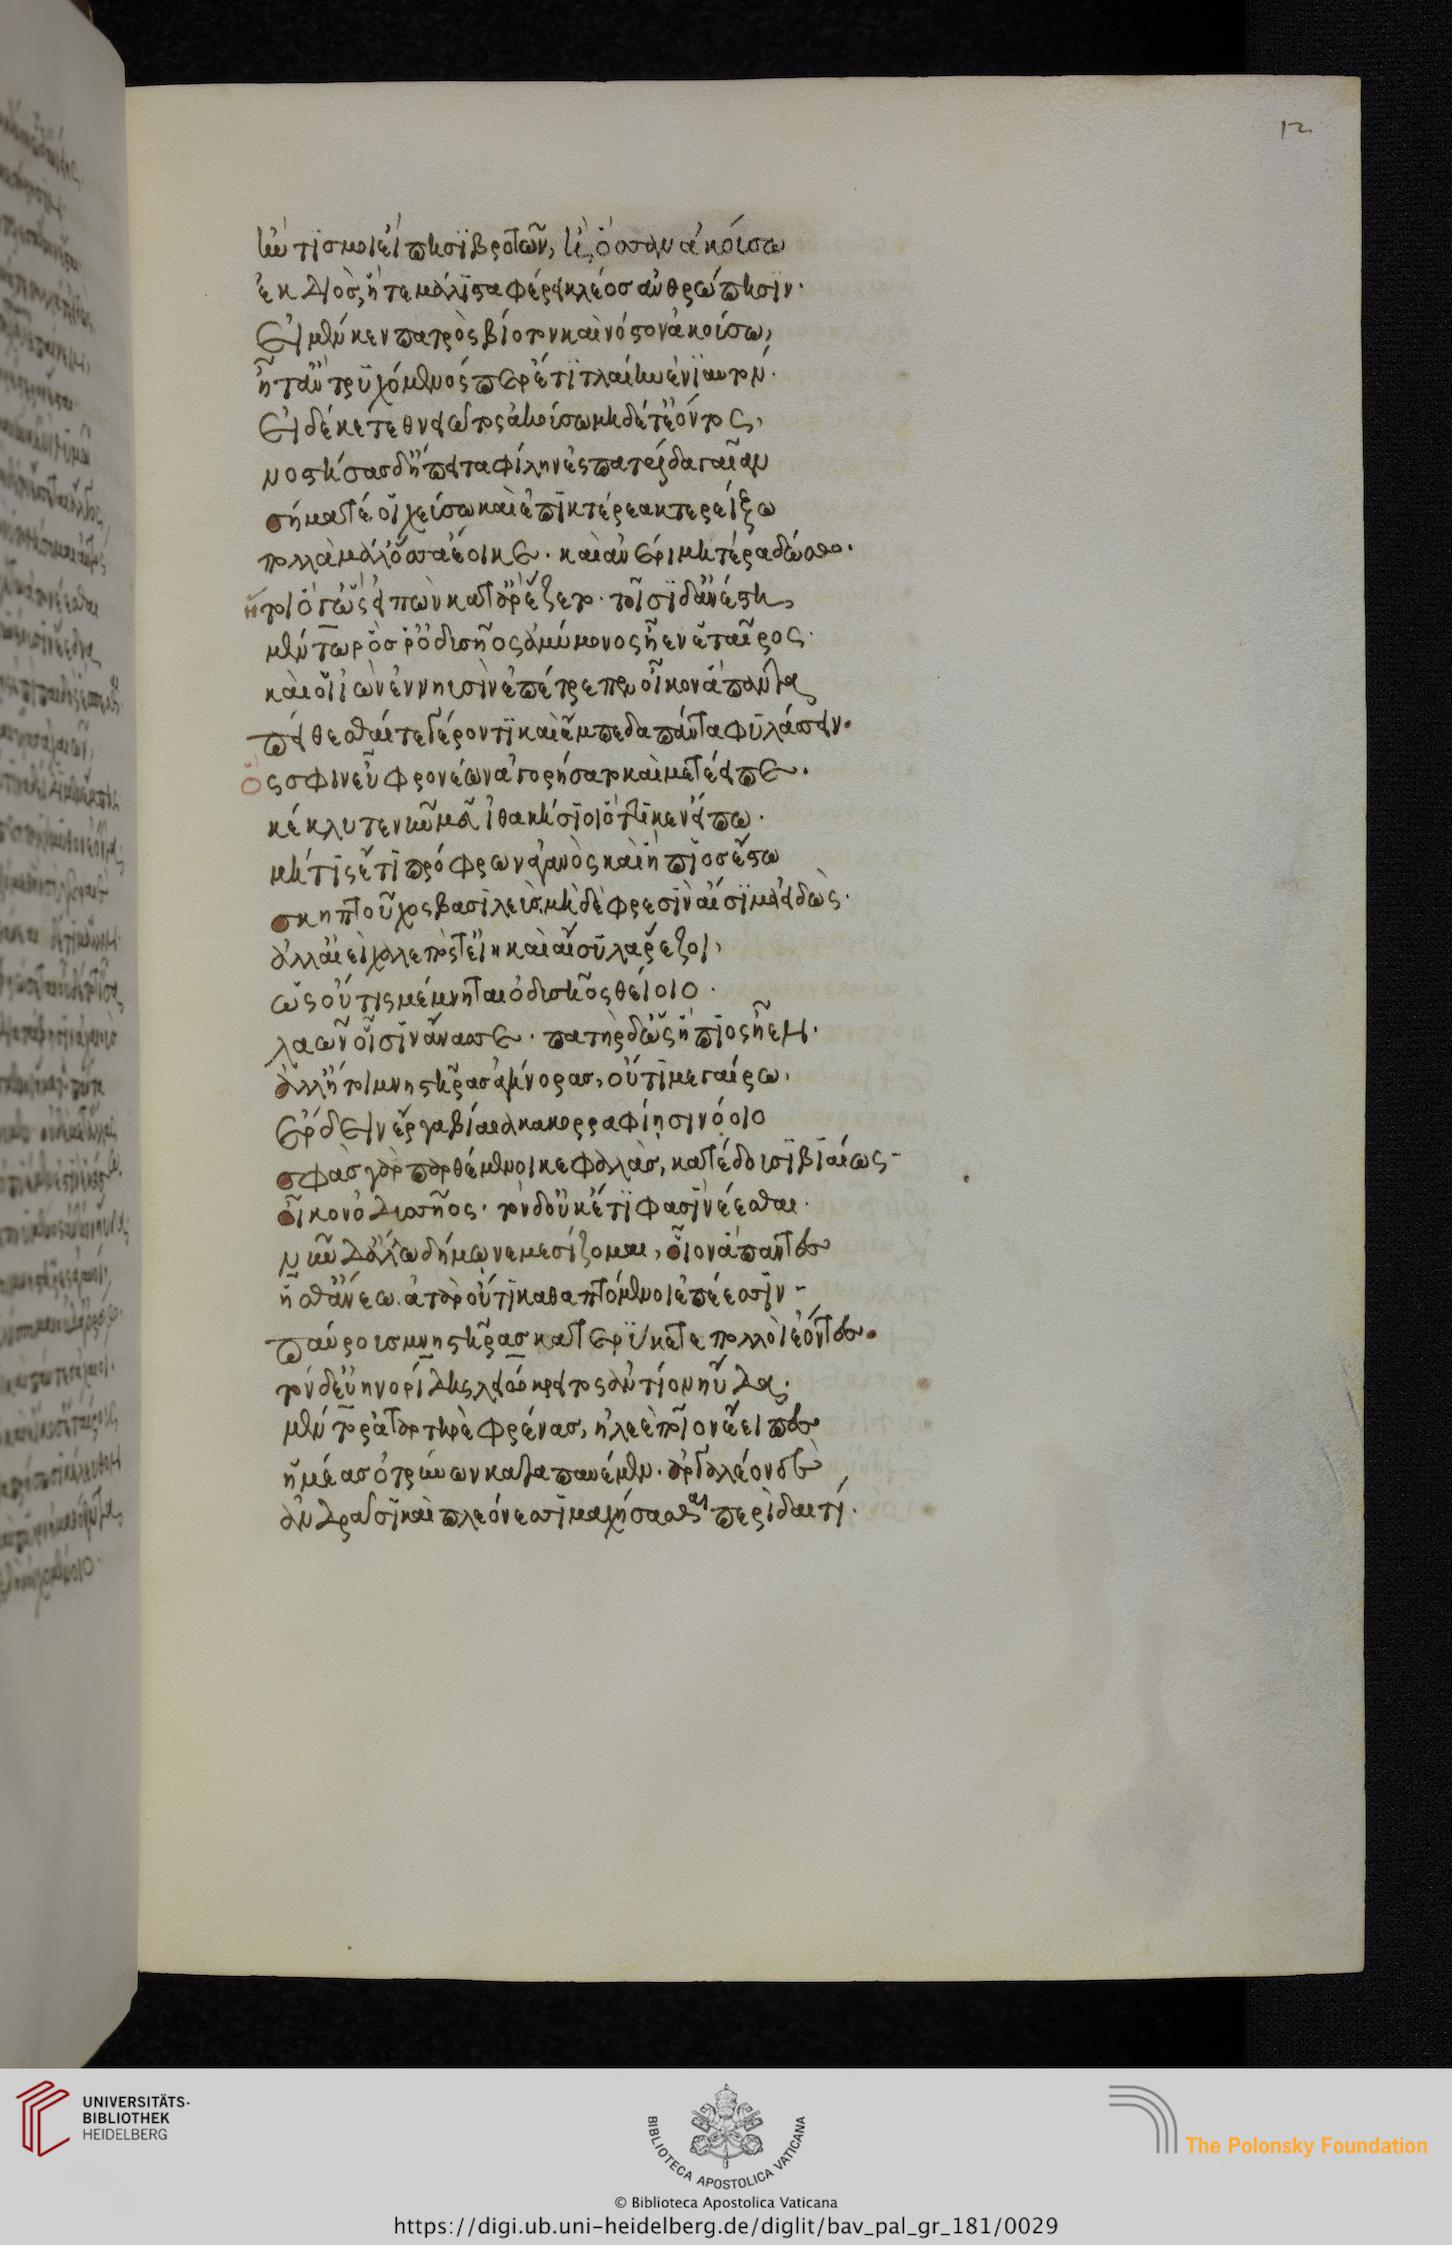 ἤν τίς μοι εἴπησι βροτῶν, ἢ ὄσσαν ἀκούσω
ἐκ Διὸς, ἥ τε μάλιστα φέρει κλέος ἀνθρώποισιν.
εἰ μέν κεν πατρὸς βίοτον καὶ νόστον ἀκούσω,
ἦ τ' ἂν τρυχόμενός περ ἔτι τλαίην ἐνιαυτόν.
εἰ δέ κε τεθνειῶτος ἀκούσω μηδέ τ' ἐόντος,
νοστήσας δὴ ἔπειτα φίλην ἐς πατρίδα γαῖαν
σῆμά τέ οἱ χεύσω καὶ ἐπὶ κτέρεα κτερεΐξω
πολλὰ μάλ' ὅσσα ἔοικε. καὶ ἀνέρι μητέρα δώσω.
ἤτοι ὅ γ' ὣς εἰπὼν κατ' ἄρ' ἕζετο. τοῖσι δ' ἀνέστη,
μέντωρ ὅς ῥ' ὀδυσῆος ἀμύμονος ἦεν ἑταῖρος.
καὶ οἱ ἰὼν ἐν νηυσὶν ἐπέτρεπεν οἶκον ἅπαντα
πείθεσθαί τε γέροντι καὶ ἔμπεδα πάντα φυλάσσειν.
ὅς σφιν εὐφρονέων ἀγορήσατο καὶ μετέειπε.
κέκλυτε νῦν μευ ἰθακήσιοι ὅττι κεν εἴπω.
μή τις ἔτι πρόφρων ἀγανὸς καὶ ἤπιος ἔστω
σκηπτοῦχος βασιλεύς, μὴ δὲ φρεσὶν αἴσιμα εἰδώς.
ἀλλ' αἰεὶ χαλεπός τ' εἴη καὶ αἴσυλα ῥέζοι,
ὡς οὔτις μέμνηται ὀδυσσῆος θείοιο.
λαῶν οἷσιν ἄνασσε. πατὴρ δ' ὣς ἤπιος ἦεν.
ἀλλ' ἤτοι μνηστῆρας ἀγήνορας, οὔτι μεγαίρω,
ἔρδειν ἔργα βίαια κακορραφίησι νόοιο
σφὰς γὰρ παρθέμενοι κεφαλὰς, κατέδουσι βιαίως
οἶκον ὀδυσσῆος. τὸν δ' οὐκέτι φασὶ νέεσθαι.
νῦν δ' ἄλλω δήμω νεμεσίζομαι, οἷον ἅπαντες
ἧσθ' ἄνεω. ἀτὰρ οὔτι καθαπτόμενοι ἐπέεσσιν
παύρους μνηστῆρας κατερύκετε πολλοὶ ἐόντες.
τὸν δ' εὐηνορίδης λειώκριτος ἀντίον ηὔδα.
μέντορ ἀταρτηρὲ φρένας, ἠλεὲ ποῖον ἔειπες
ἡμέας ὀτρύνων καταπαυέμεν. ἀργαλέον δὲ
ἀνδράσι καὶ πλεόνεσσι μαχήσασθαι περὶ δαιτί.
12
UNIVERSITÄTS-
BIBLIOTHEK
HEIDELBERG
BIBLIOTECA APOSTOLICA VATICANA
© Biblioteca Apostolica Vaticana
The Polonsky Foundation
https://digi.ub.uni-heidelberg.de/diglit/bav_pal_gr_181/0029